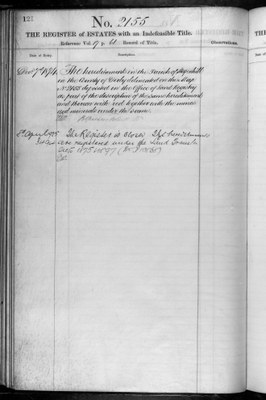 122
No. 2155
THE REGISTER of ESTATES with an Indefeasible Title.
Reference Vol. 17 p. 61 Record of Title.
Observations.
Date of Entry.
Description.
Decr 7th 1874
The hereditaments in the Parish of
in the County of Derby delineated on the Map
No 2155 deposited in the Office of Land Registry
as part of the description of the same hereditaments
and thereon with red together with the mines
and minerals under the same
The Register is closed The hereditaments
are registered under the Land Transfer
Acts 1875 & 1897